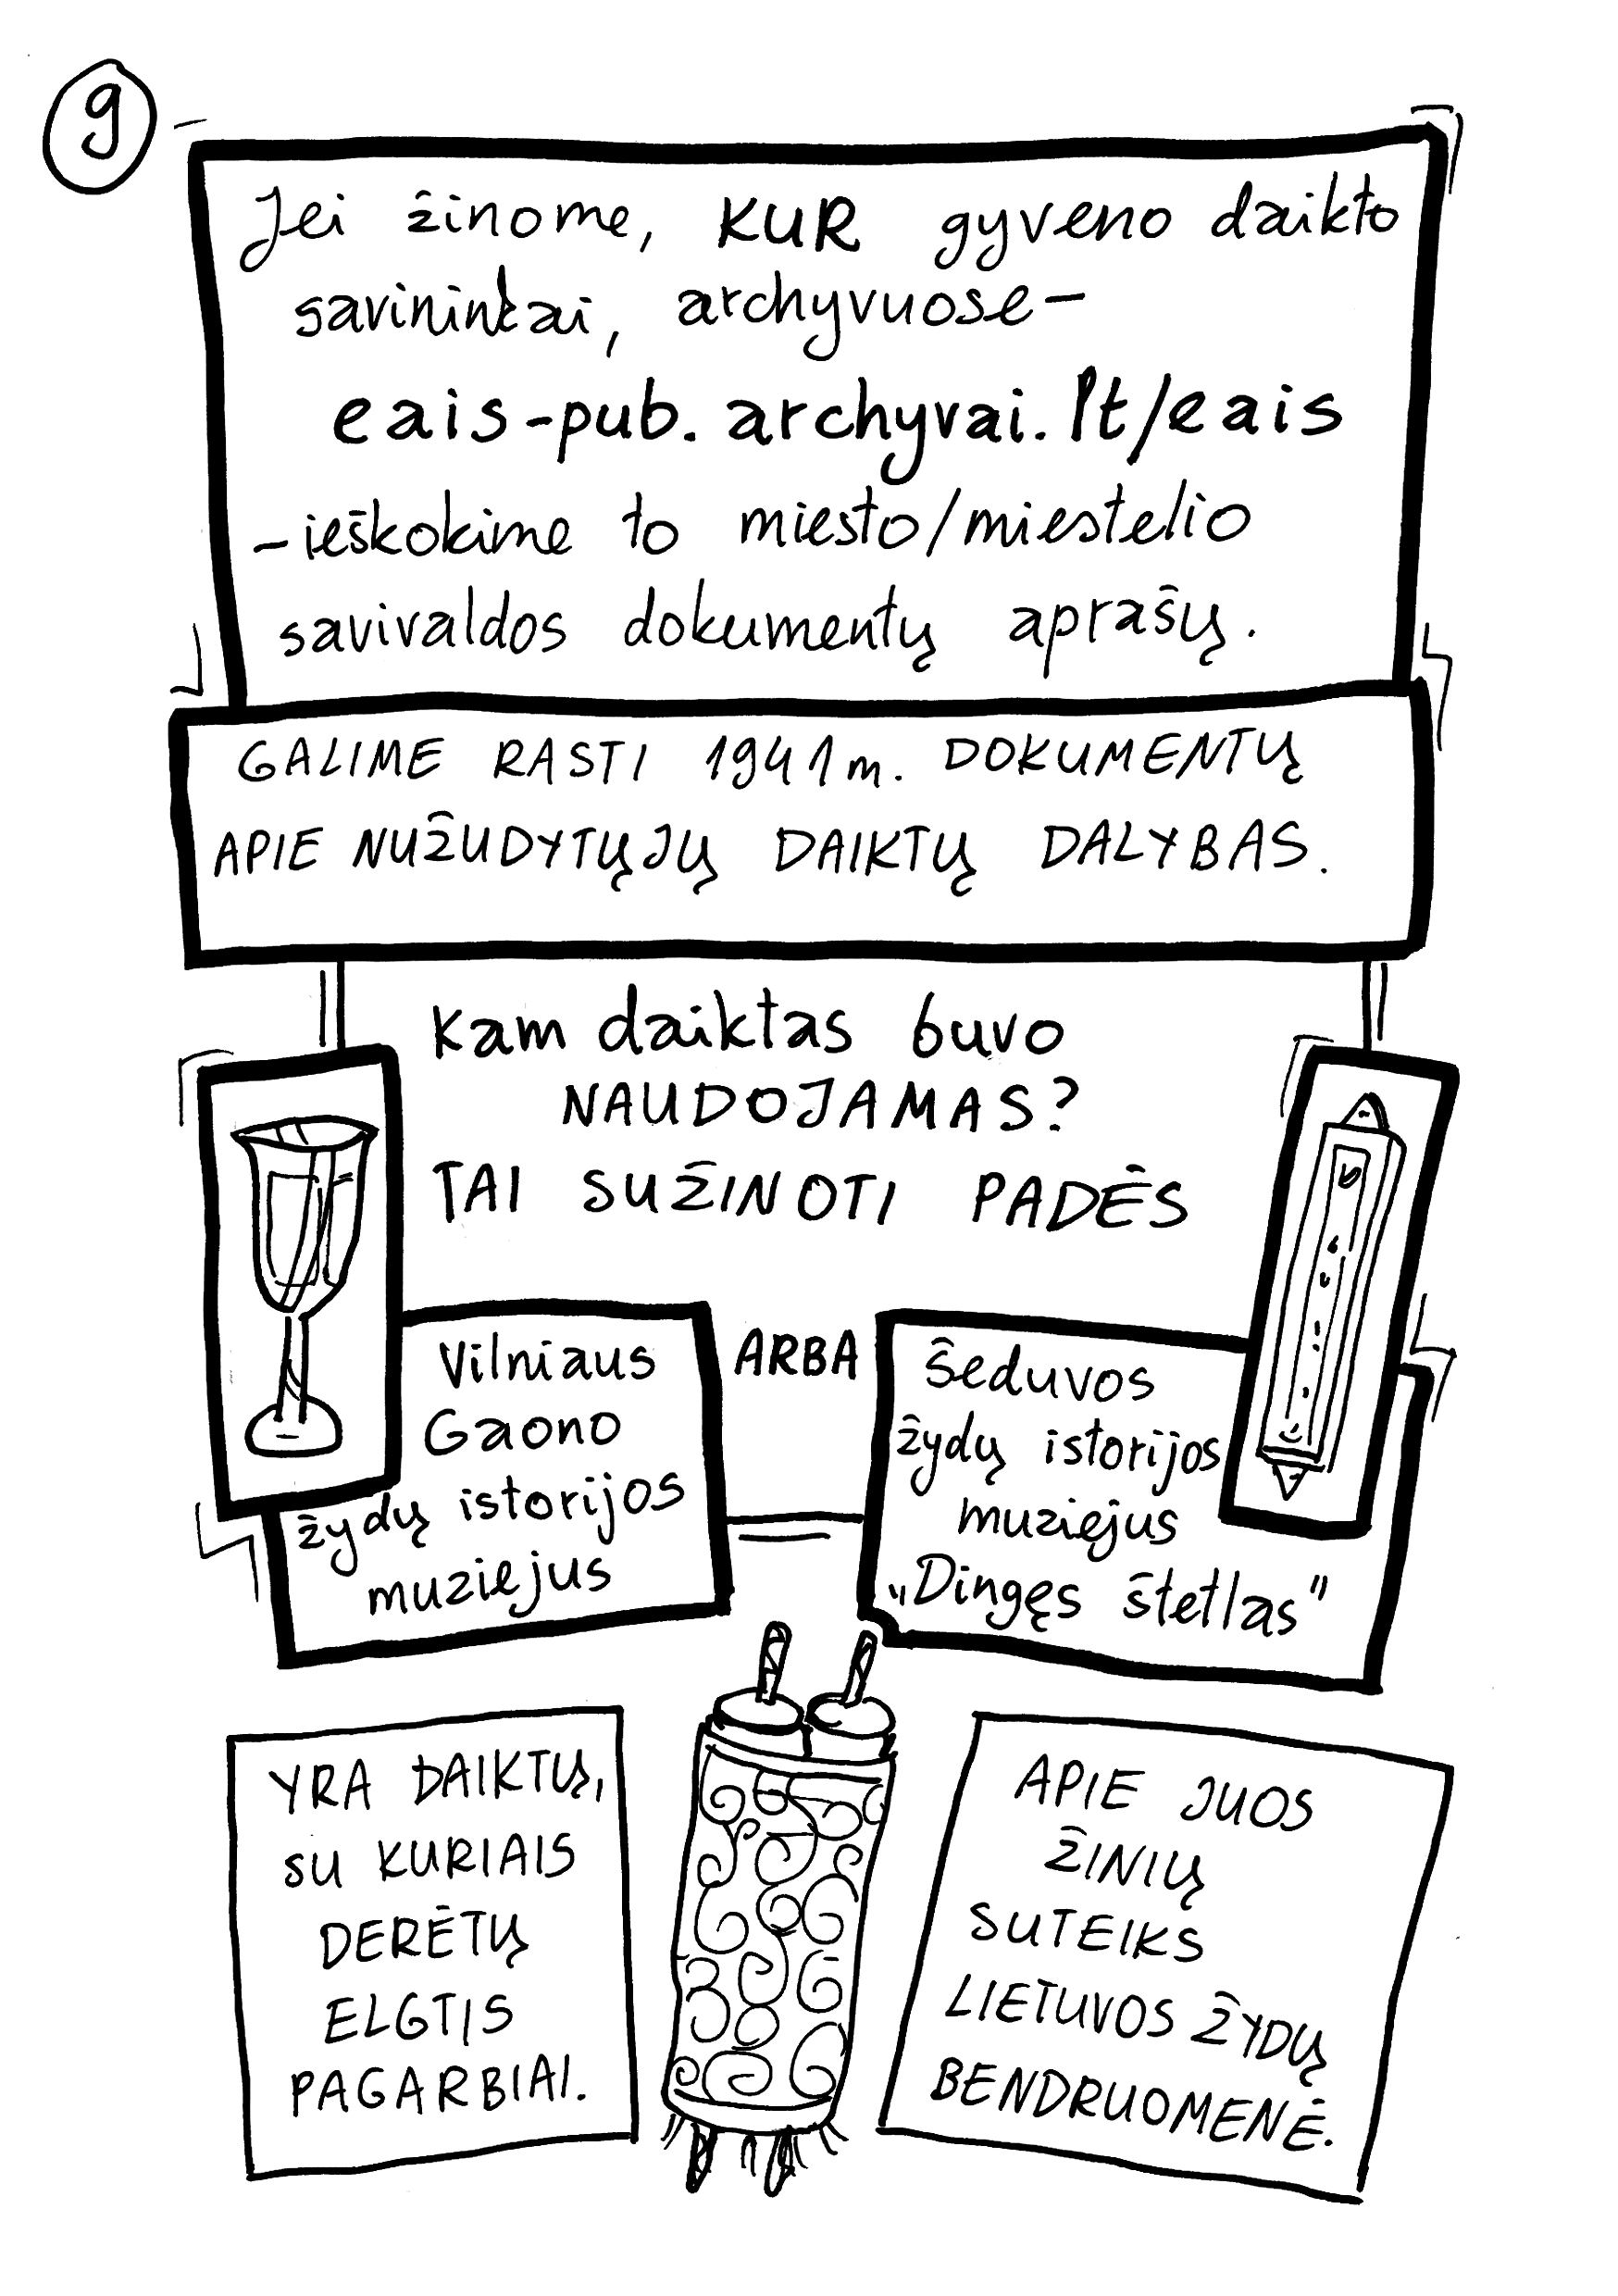 9
Jei žinome, KUR gyveno daikto
savininkai, archyvuose –
eais-pub.archyvai.lt/eais
– ieškokime to miesto/miestelio
savivaldos dokumentų aprašų.
GALIME RASTI 1941 m. DOKUMENTŲ
APIE NUŽUDYTŲJŲ DAIKTŲ DALYBAS.
Kam daiktas buvo
NAUDOJAMAS?
TAI SUŽINOTI PADĖS
Vilniaus
Gaono
žydų istorijos
muziejus
ARBA
Šeduvos
žydų istorijos
muziejus
„Dingęs štetlas"
YRA DAIKTŲ,
SU KURIAIS
DERĖTŲ
ELGTIS
PAGARBIAI.
APIE JUOS
ŽINIŲ
SUTEIKS
LIETUVOS ŽYDŲ
BENDRUOMENĖ.